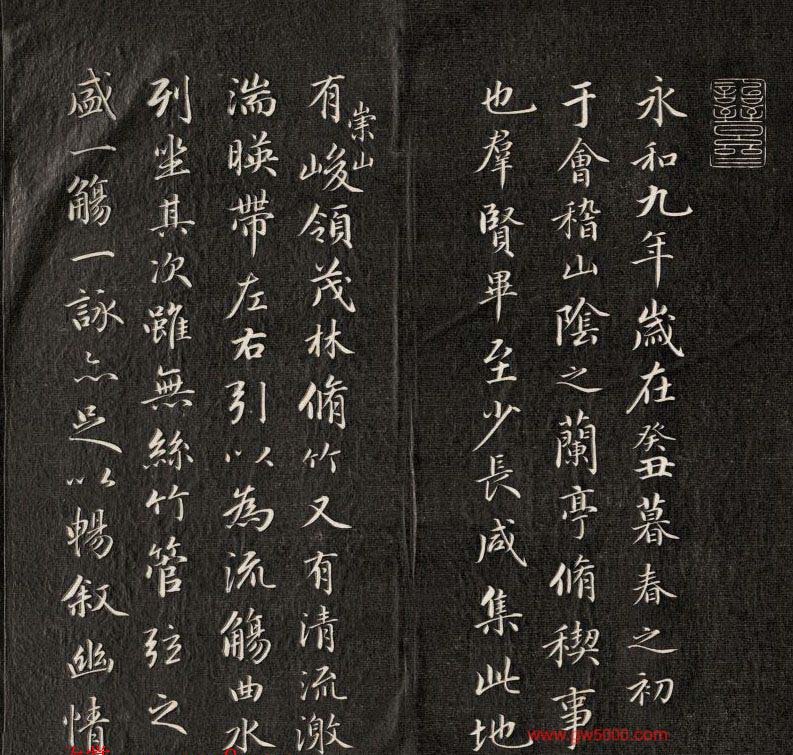 永和九年歲在癸丑暮春之初
于會稽山陰之蘭亭脩稧事
也羣賢畢至少長咸集此地
有崇山峻領茂林脩竹又有清流激
湍暎帶左右引以為流觴曲水
列坐其次雖無絲竹管弦之
盛一觴一詠亦足以暢叙幽情
www.gw5000.com